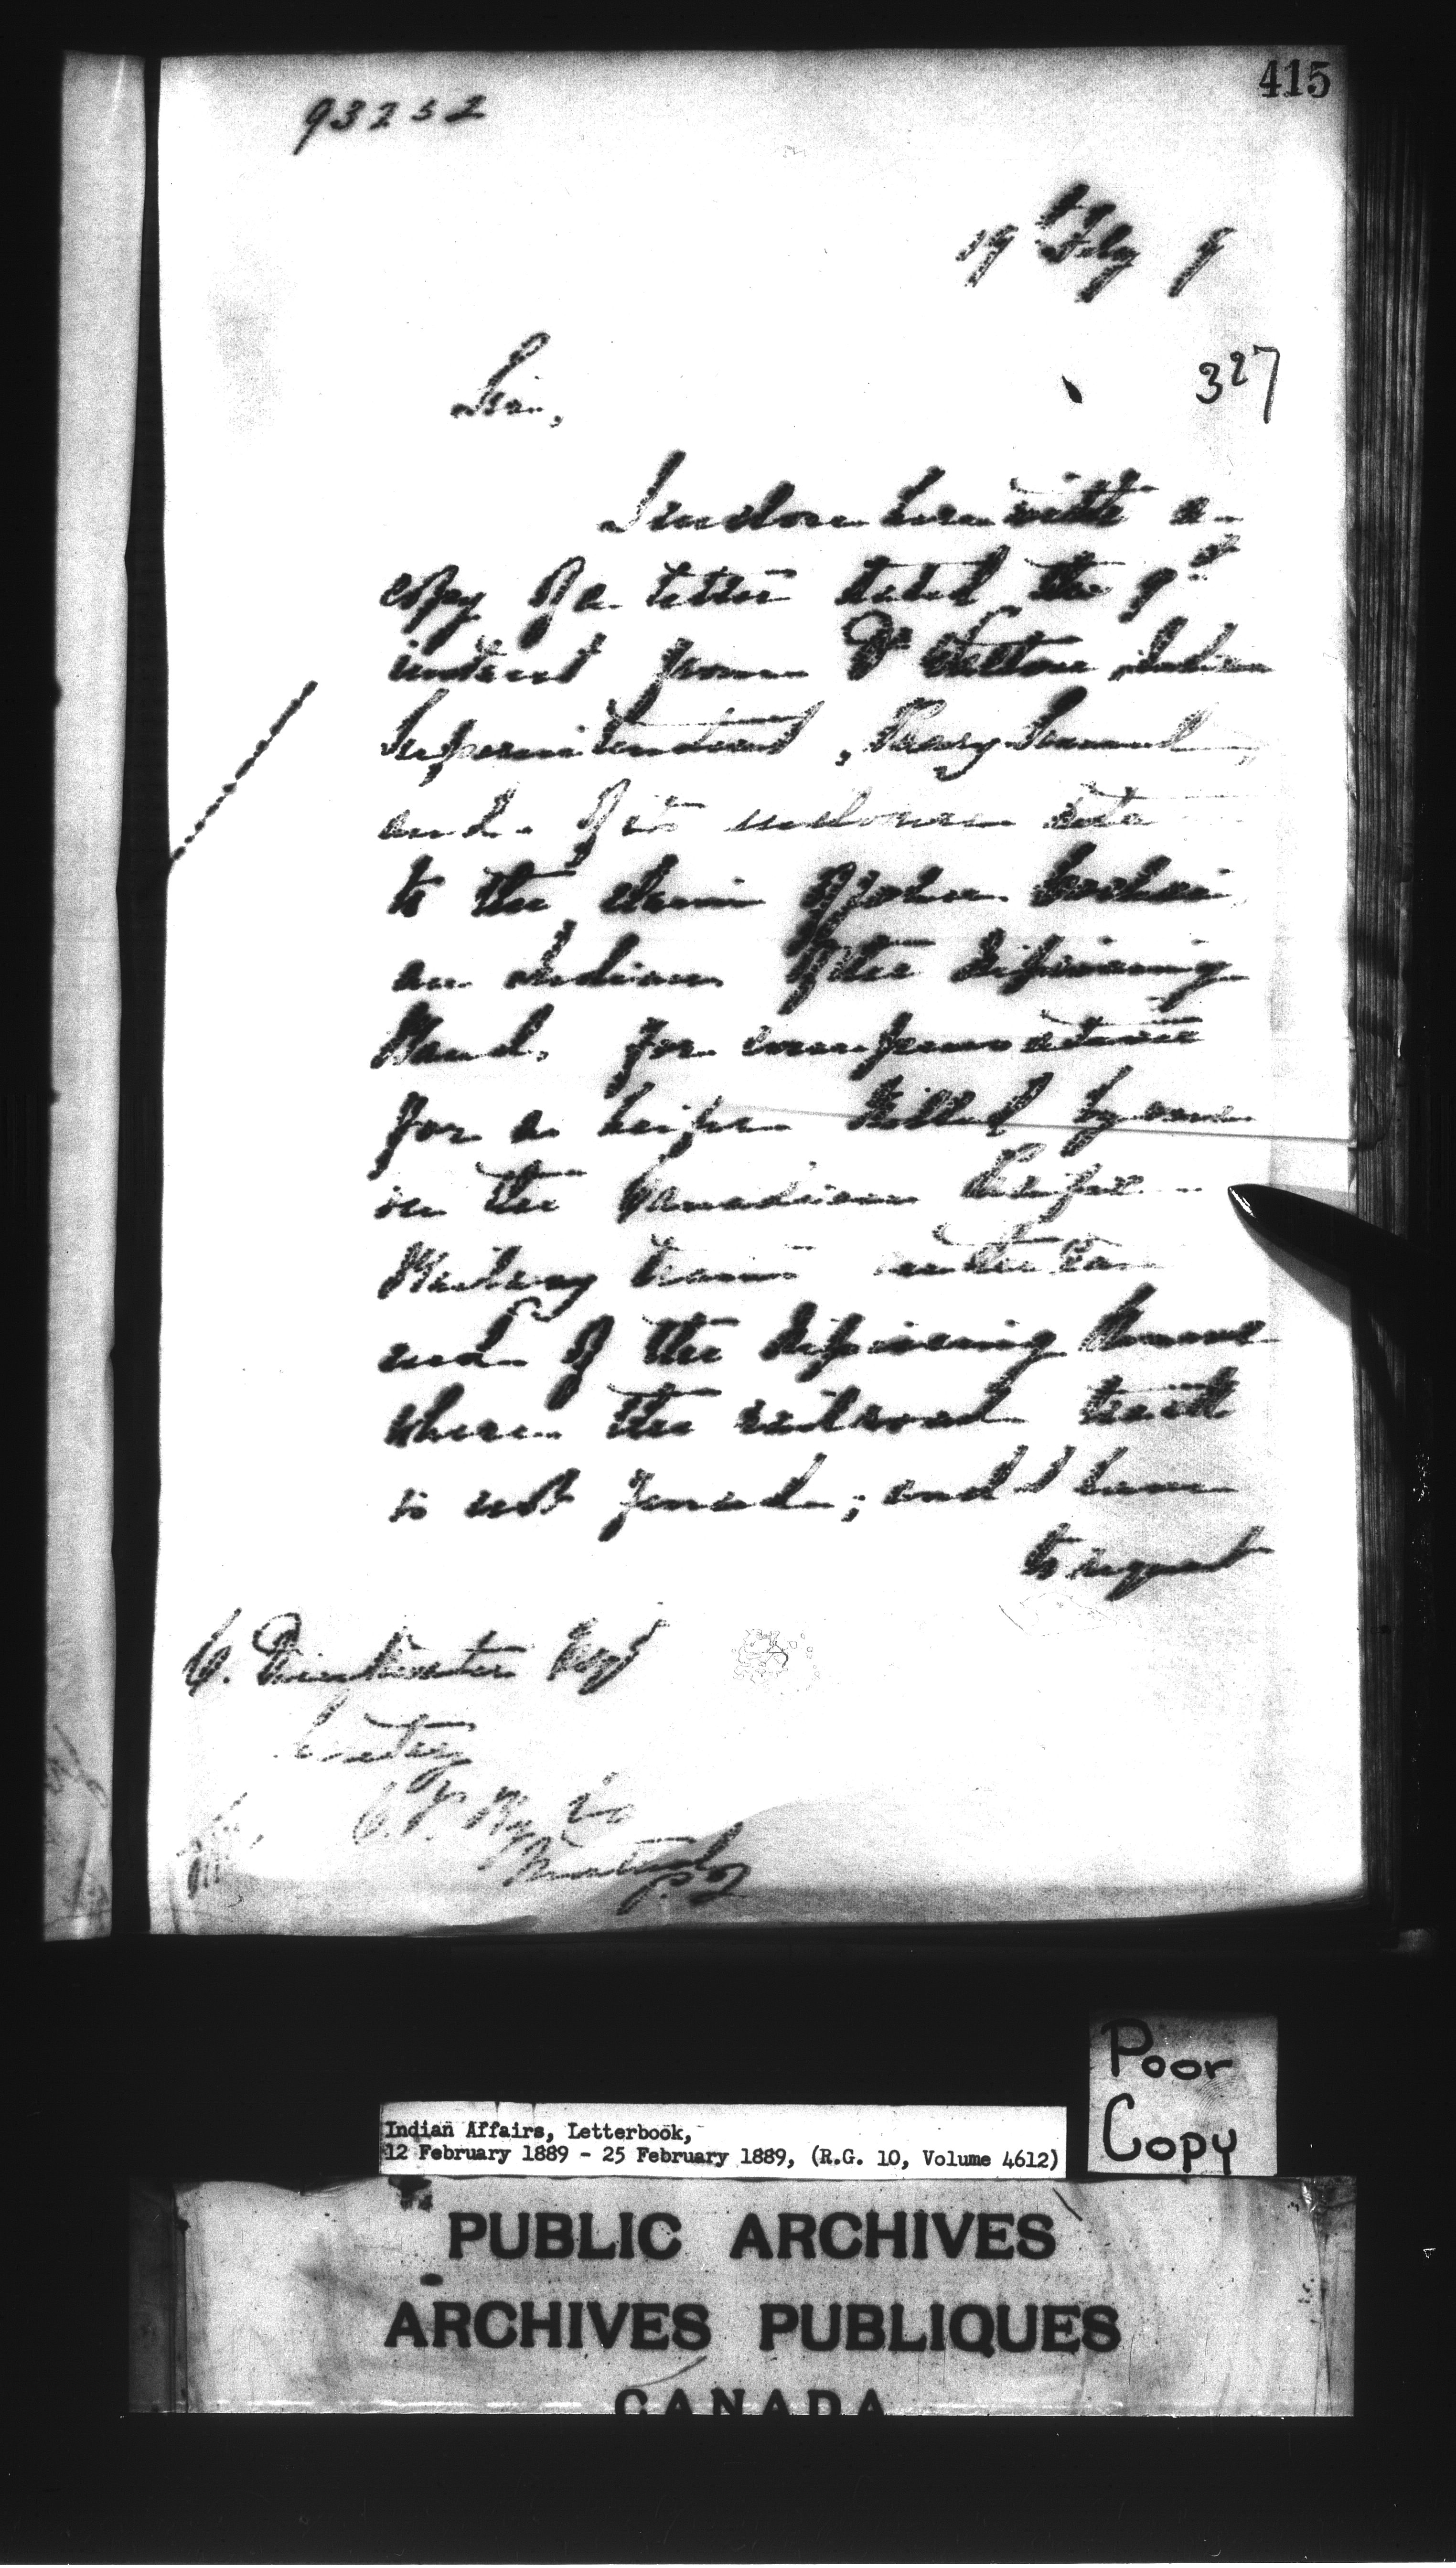 415
93252
19th Feby 9
327
Sir,
I enclose herewith a
copy of a letter dated the 9th
instant from Dr Walton Indian
Superintendent, Parry Sound,
and of its enclosure rela
to the claim of John
an Indian of the Nipissing
Band, for compensation
for a heifer killed by
on the Canadian Pacific
Railway train
end of the Nipissing Reserve
where the railroad track
is not fenced; and I have
to request
C. Drinkwater Esqr
Secretary
C. P. Ry Co
Montreal
P.Q.
Poor
Copy
Indian Affairs, Letterbook,
12 February 1889 - 25 February 1889, (R.G. 10, Volume 4612)
PUBLIC ARCHIVES
ARCHIVES PUBLIQUES
CANADA